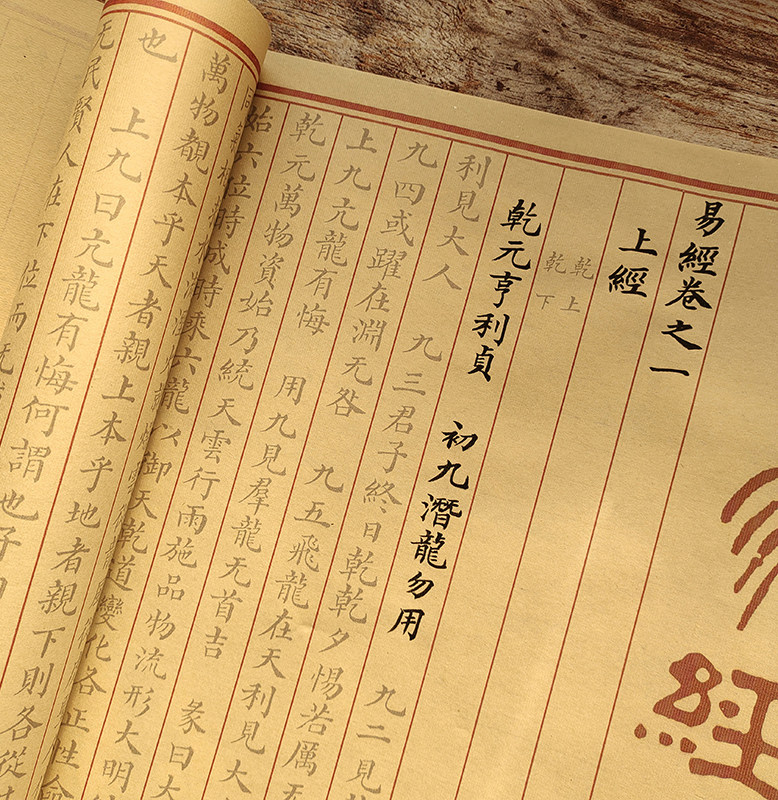 經
易經卷之一
上經
乾上
乾下
乾元亨利貞 初九潛龍勿用 九二見
利見大人 九三君子終日乾乾夕惕若厲无
九四或躍在淵无咎 九五飛龍在天利見大
上九亢龍有悔 用九見羣龍无首吉 彖曰大
乾元萬物資始乃統天雲行雨施品物流形大明
始六位時成時乘六龍以御天乾道變化各正性命
萬物覩本乎天者親上本乎地者親下則各從
也 上九曰亢龍有悔何謂也子曰
无民賢人在下位而无